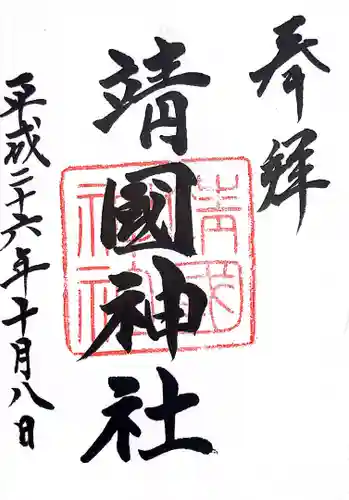 奉拝
靖國神社
平成二十六年十月八日
靖国
神社